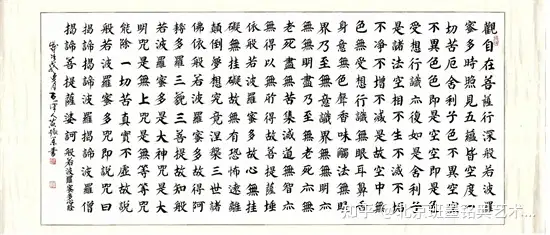 觀自在菩薩行深般若波羅
蜜多時照見五蘊皆空度一
切苦厄舍利子色不異空空
不異色色即是空空即是色
受想行識亦復如是舍利子
是諸法空相不生不滅不垢
不淨不增不減是故空中無
色無受想行識無眼耳鼻舌
身意無色聲香味觸法無眼
界乃至無意識界無無明亦
無無明盡乃至無老死亦無
老死盡無苦集滅道無智亦
無得以無所得故菩提薩埵
依般若波羅蜜多故心無挂
礙無挂礙故無有恐怖遠離
顛倒夢想究竟涅槃三世諸
佛依般若波羅蜜多故得阿
耨多羅三藐三菩提故知般
若波羅蜜多是大神咒是大
明咒是無上咒是無等等咒
能除一切苦真實不虛故說
般若波羅蜜多咒即說咒曰
揭諦揭諦波羅揭諦波羅僧
揭諦菩提薩婆訶 般若波羅蜜多心經
知乎 @北京班墨铭典艺术...